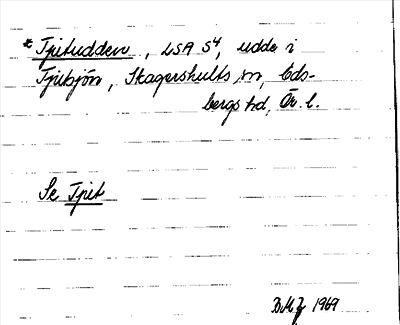 * Tjitudden, LSA S4, udde i
Tjitsjön, Skagershults sn, Eds-
bergs hd, Ör. l.
Se Tjit
1969